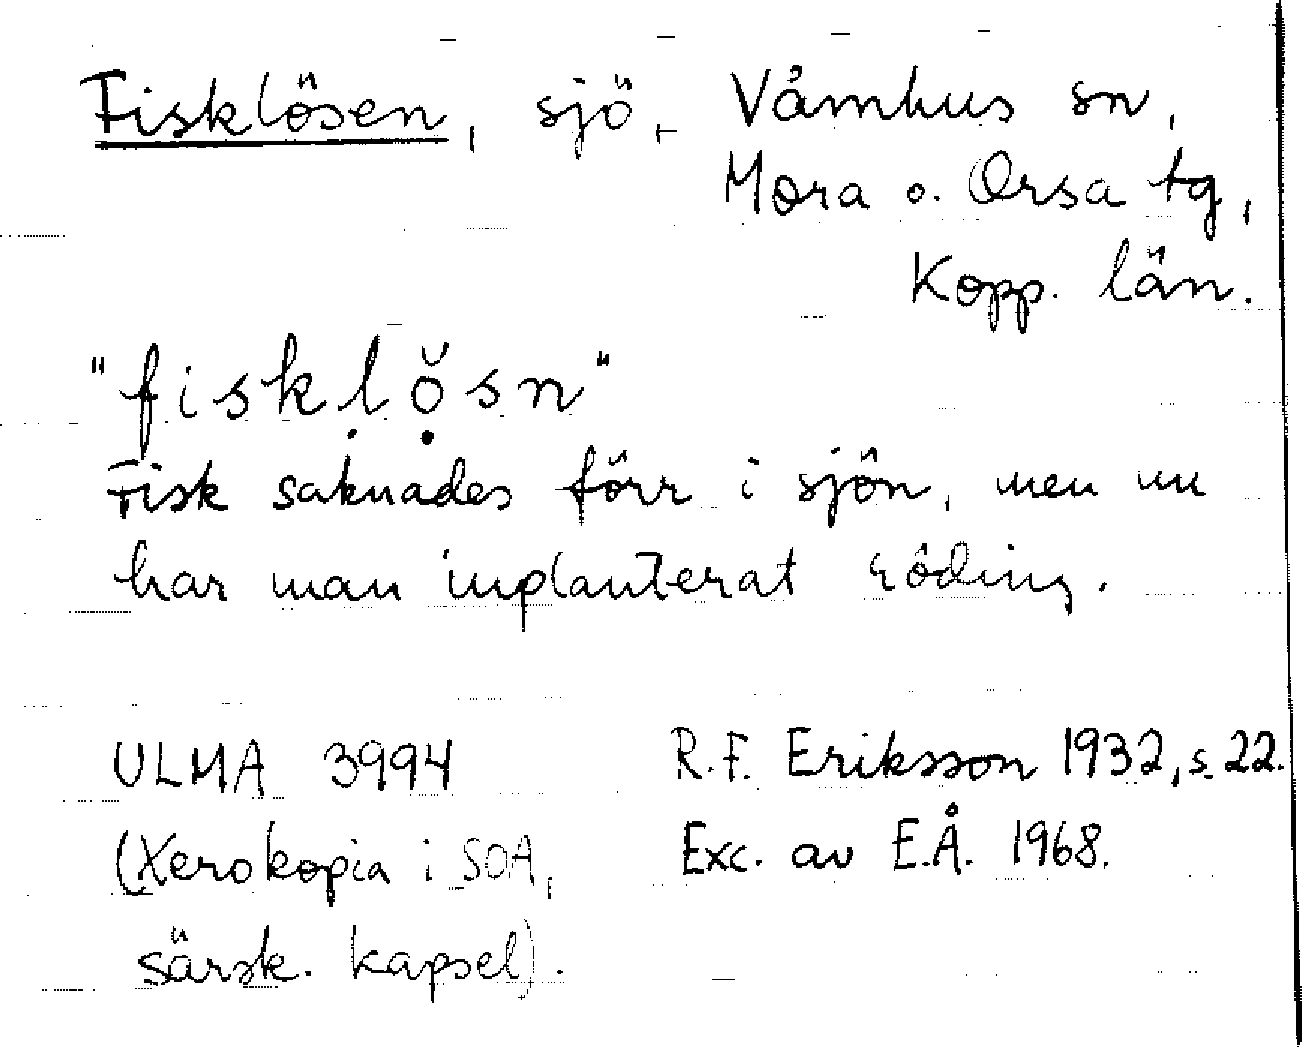 Fisklösen, sjö, Våmhus sn,
Mora o. Orsa tg,
Kopp. län.
"fisḳlọ̆sn"
Fisk saknades förr i sjön, men nu
har man inplanterat röding.
ULMA 3994 R.F. Eriksson 1932, s. 22.
(Xerokopia i SOA, Exc. av E.Å. 1968.
särsk. kapsel).